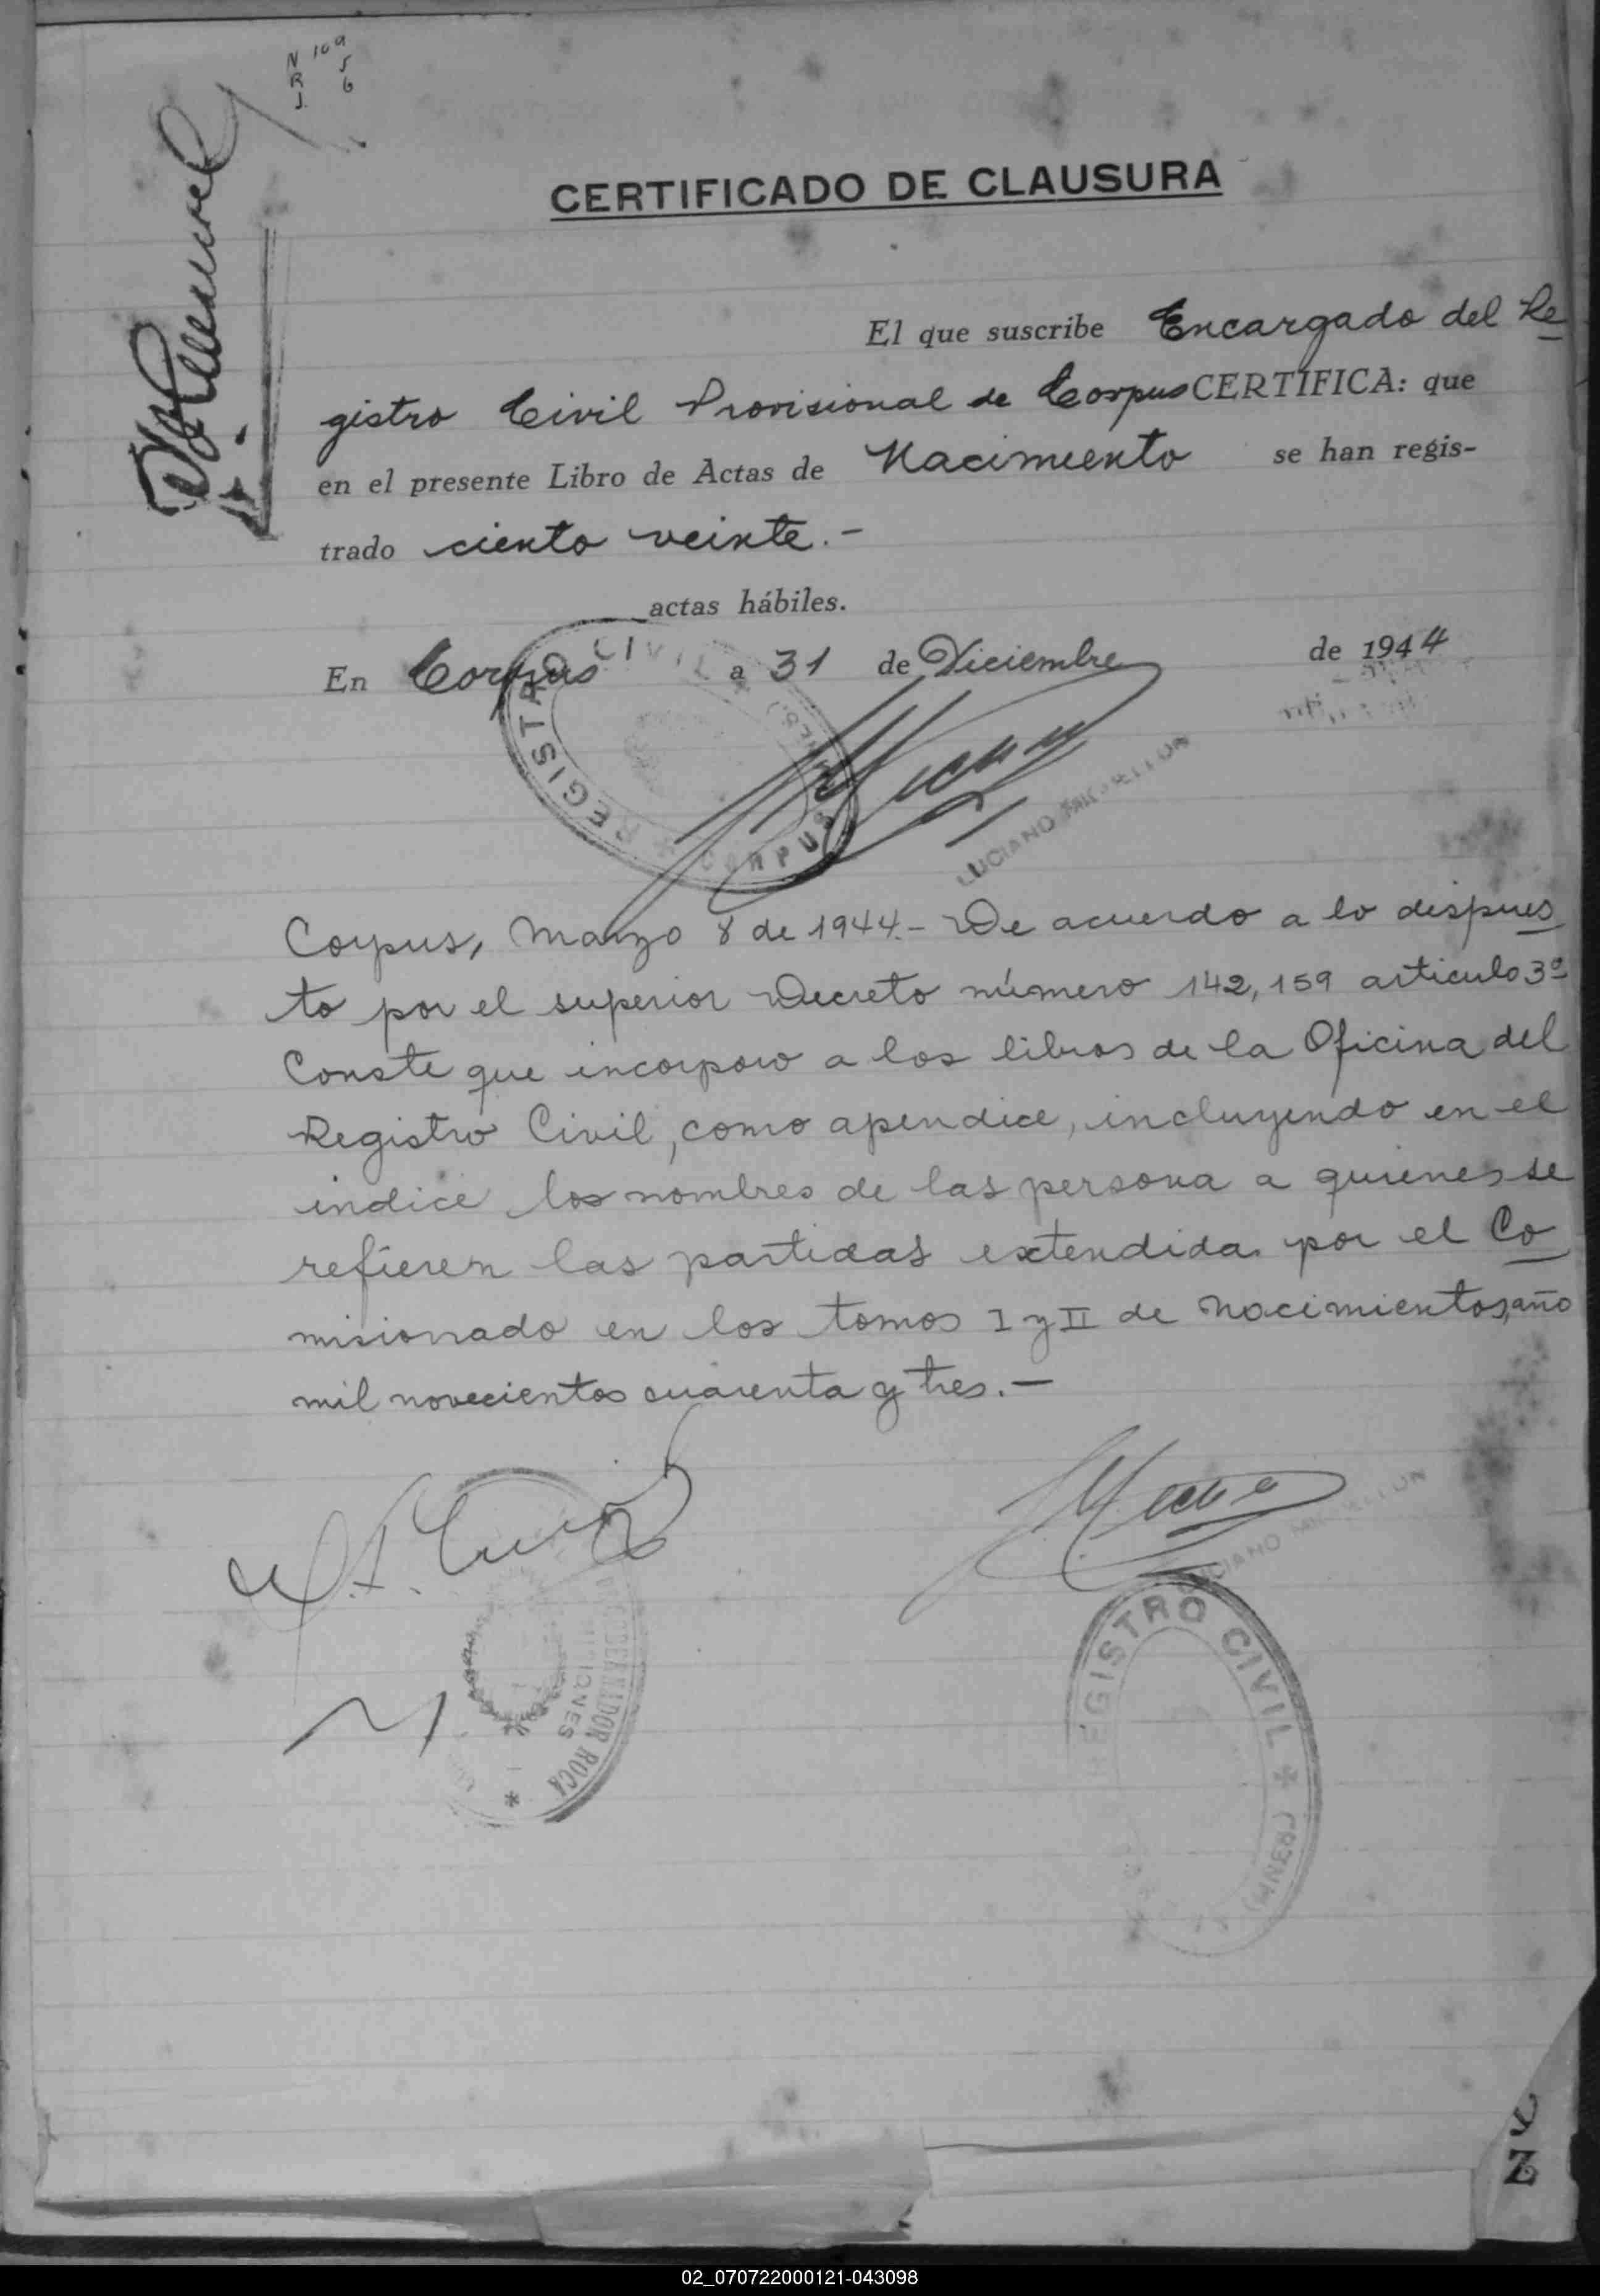 N 109
R 5
J 6
CERTIFICADO DE CLAUSURA
El que suscribe Encargado del Re
gistro Civil Provisional de Corpus CERTIFICA: que
en el presente Libro de Actas de Nacimiento se han regis-
trado ciento veinte.-
actas hábiles.
En Corpus a 31 de Diciembre de 1944
REGISTRO CIVIL
CORPUS
LUCIANO
Corpus, Marzo 8 de 1944.- De acuerdo a lo dispues
to por el superior Decreto número 142,159 articulo 3º
Conste que incorporo a los libros de la Oficina del
Registro Civil, como apendice, incluyendo en el
indice los nombres de las persona a quienes se
refieren las partidas extendidas por el Co
misionado en los tomos I y II de Nacimientos, año
mil novecientos cuarenta y tres.-
LUCIANO
GOBERNADOR ROCA
MISIONES
REGISTRO CIVIL
02_070722000121-043098